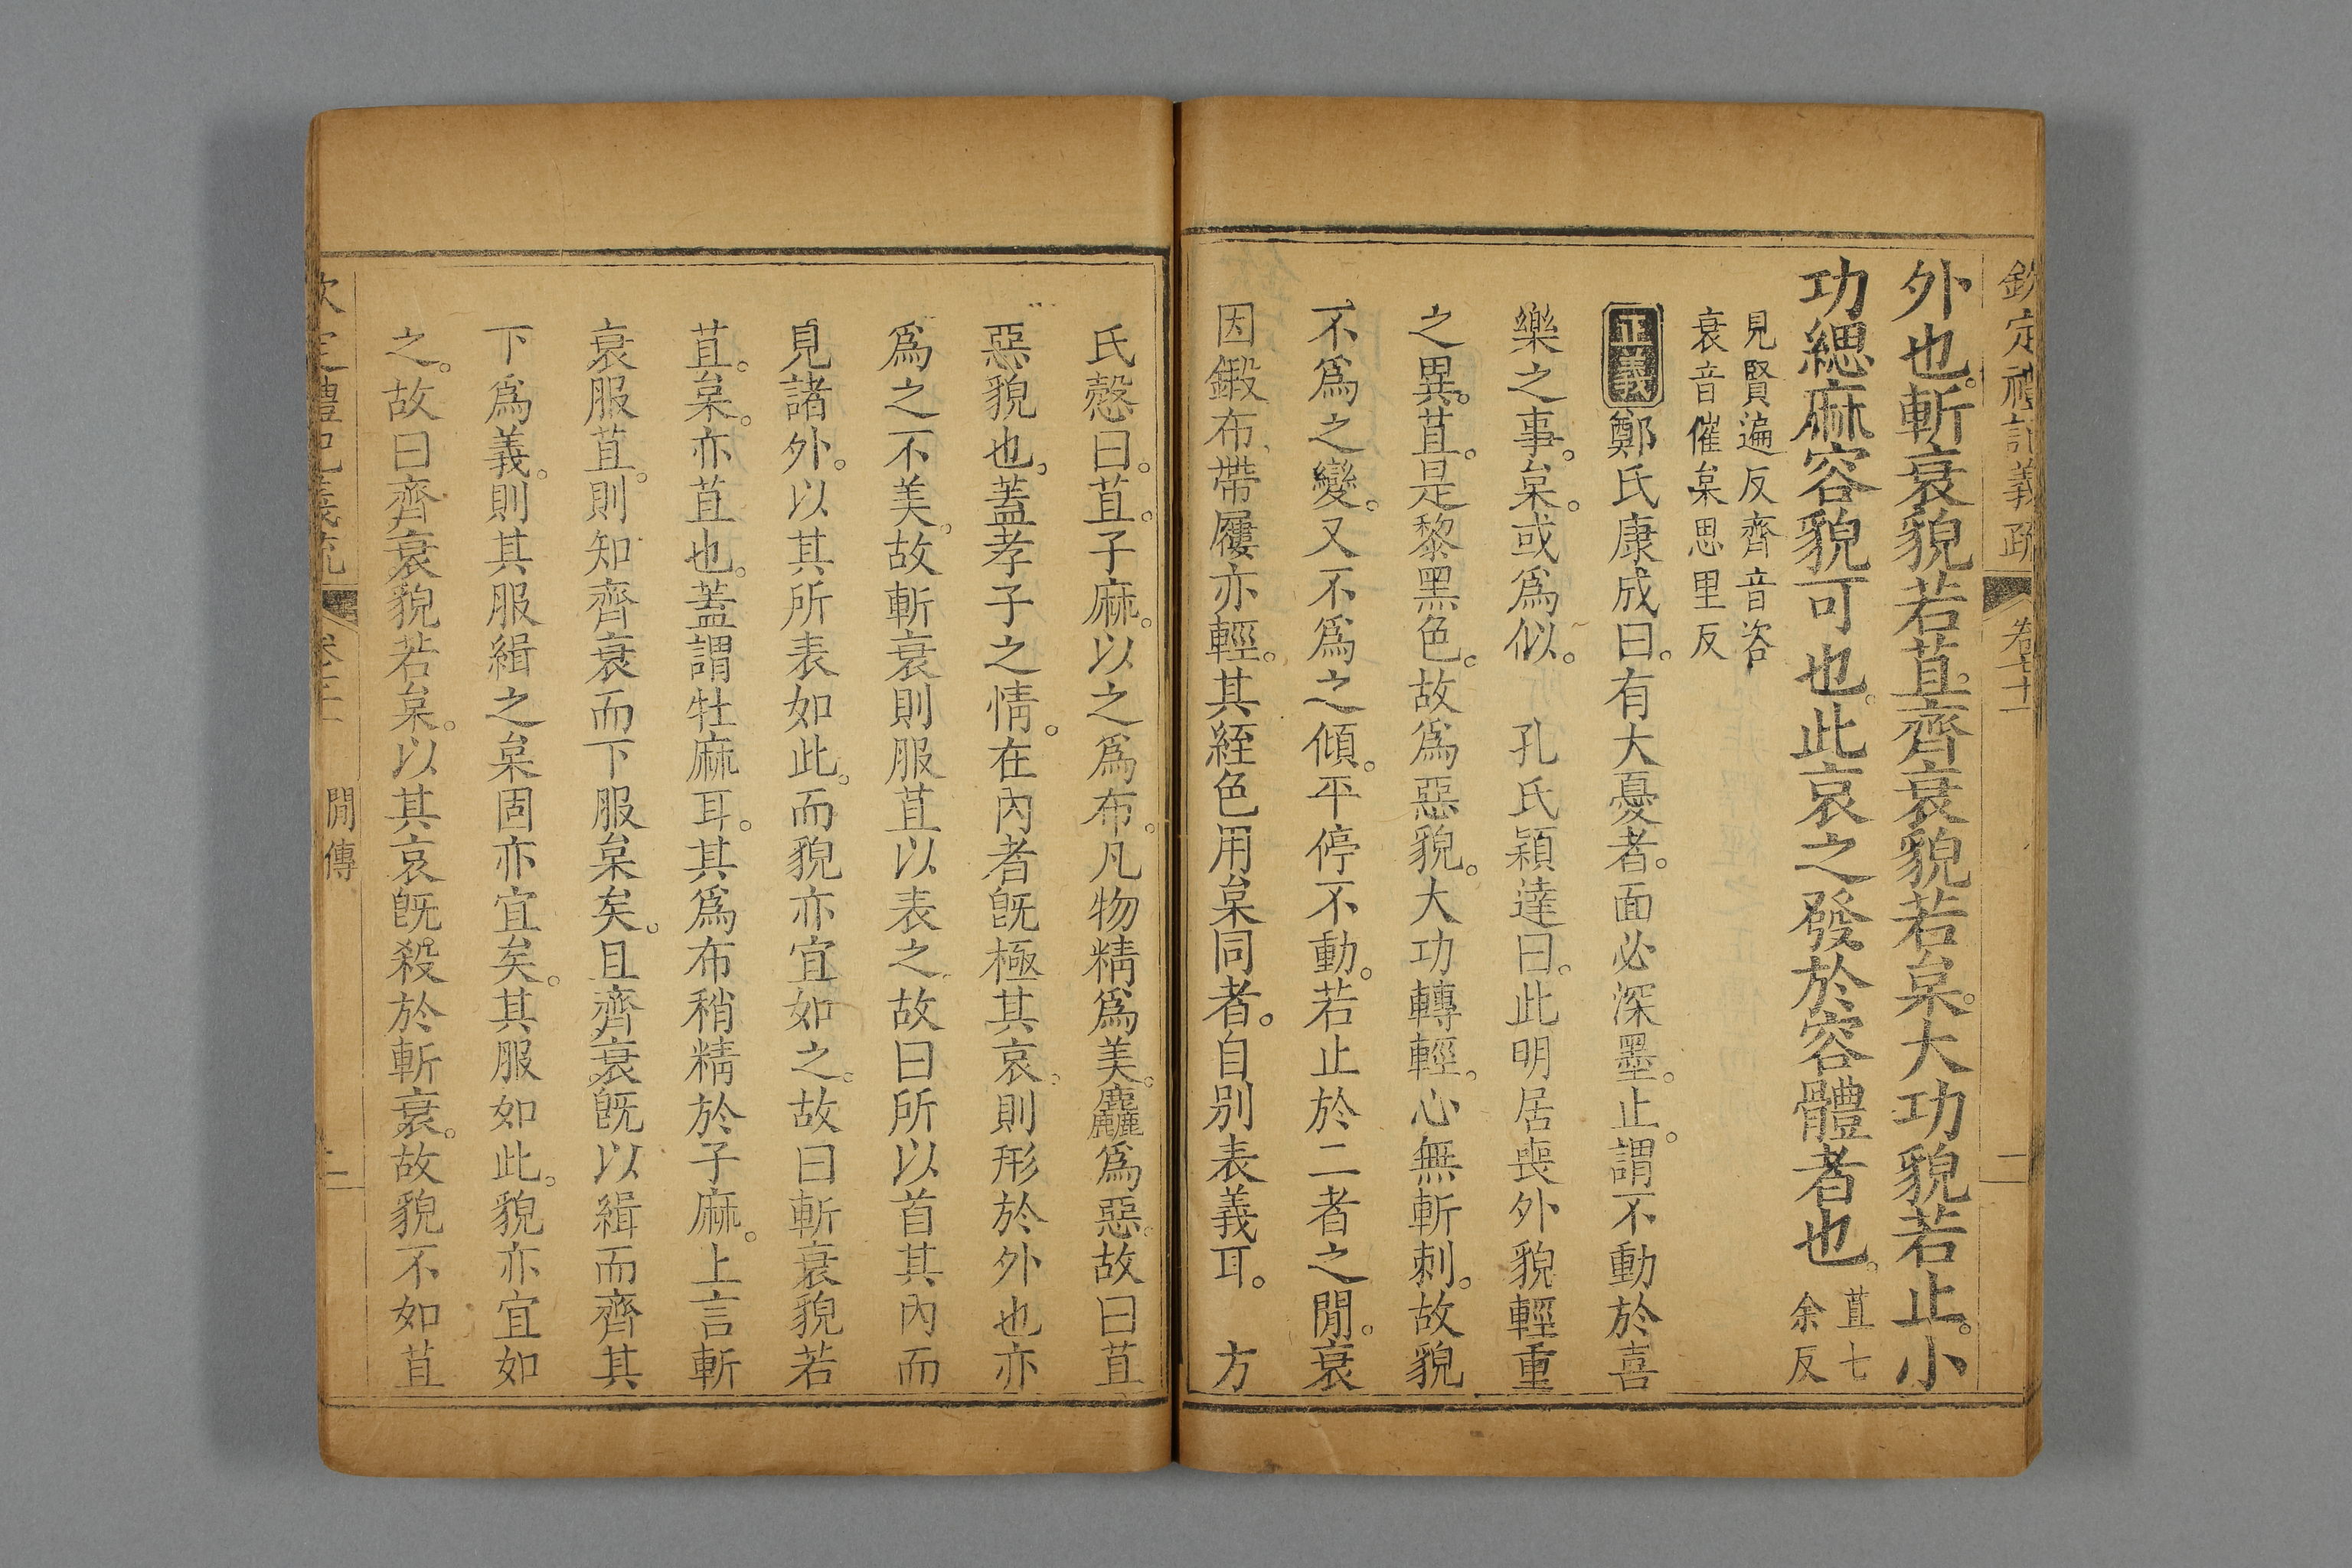 欽定禮記義疏 卷七十二 二
外也。斬衰貌若苴。齊衰貌若枲。大功貌若止。小
功緦麻容貌可也。此哀之發於容體者也。苴七
余反
見賢遍反齊音咨
衰音催枲思里反
正義 鄭氏康成曰。有大憂者。面必深墨。止。謂不動於喜
樂之事。枲。或爲似。 孔氏穎達曰。此明居喪外貌輕重
之異。苴。是黎黑色。故爲惡貌。大功轉輕。心無斬刺。故貌
不爲之變。又不爲之傾。平停不動。若止於二者之閒。衰
因鍛布、帶屨亦輕。其絰色用枲同者。自別表義耳。 方
氏慤曰。苴。子麻。以之爲布。凡物精爲美。麤爲惡。故曰苴
惡貌也。蓋孝子之情。在內者旣極其哀。則形於外也亦
爲之不美。故斬衰則服苴以表之。故曰所以首其內而
見諸外。以其所表如此。而貌亦宜如之。故曰斬衰貌若
苴。枲。亦苴也。蓋謂牡麻耳。其爲布稍精於子麻。上言斬
衰服苴。則知齊衰而下服枲矣。且齊衰旣以緝而齊其
下爲義。則其服緝之枲固亦宜矣。其服如此。貌亦宜如
之。故曰齊衰貌若枲。以其哀旣殺於斬衰。故貌不如苴
定禮記義疏 閒傳